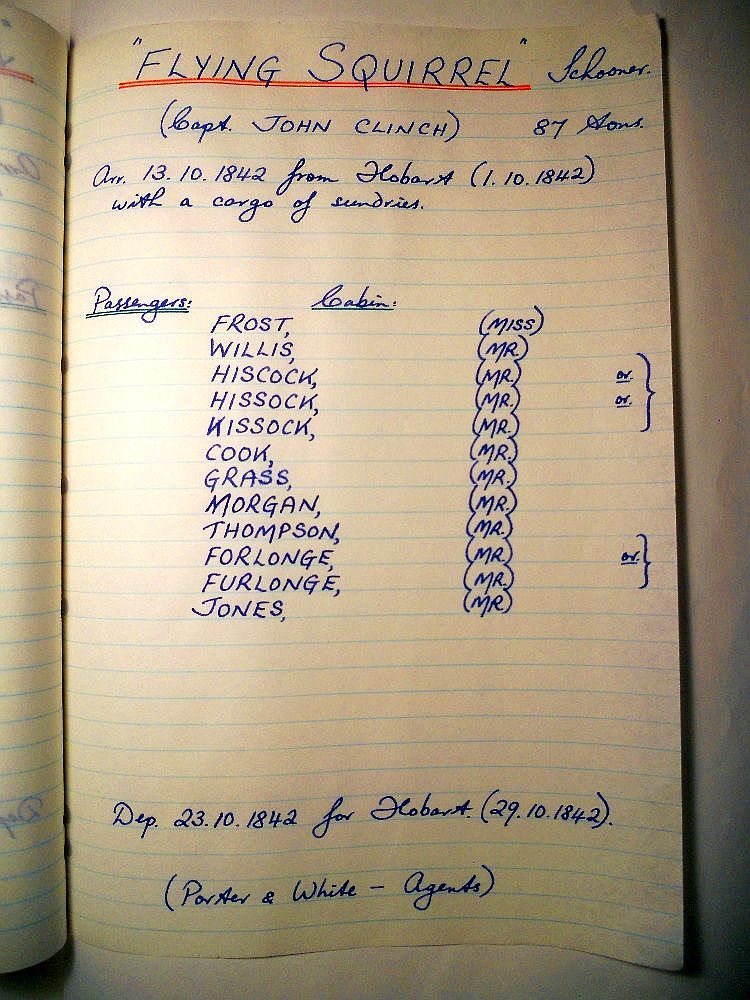 "FLYING SQUIRREL" Schooner.
(Capt. JOHN CLINCH) 87 Tons.
Arr. 13.10.1842 from Hobart (1.10.1842)
with a cargo of sundries.
Passengers: Cabin:
FROST, (MISS)
WILLIS, (MR.)
HISCOCK, (MR.) or.
HISSOCK, (MR.) or.
KISSOCK, (MR.)
COOK, (MR.)
GRASS, (MR.)
MORGAN, (MR.)
THOMPSON, (MR.)
FORLONGE, (MR.) or.
FURLONGE, (MR.)
JONES, (MR)
Dep. 23.10.1842 for Hobart. (29.10.1842).
(Porter & White - Agents)